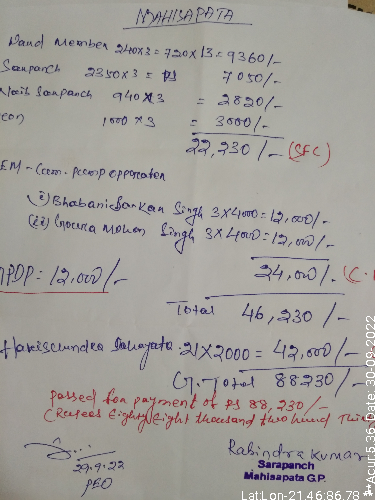 MAHISAPATA
Ward Member 240x3=720x13=9360/-
Sarpanch 2350x3 = Rs 7050/-
Naib Sarpanch 940x3 = 2820/-
1000x3 = 3000/-
22,230/- (SFC)
EM - Cum. Pump opperater
(i) Bhabanisankar Singh 3x4000=12,000/-
(ii) Goura Mohan Singh 3x4000=12,000/-
24,000/-
GPDP = 12,000/-
Total 46,230/-
Harischandra Sahayata 21x2000 = 42,000/-
G.Total 88230/-
passed for payment of Rs 88,230/-
(Rupees Eighty Eight thousand two hund Thir
29.9.22
PEO
Rabindra Kumar
Sarapanch
Mahisapata G.P.
LatLon-21.46:86.78
**Acur:5.36 Date: 30-09-2022